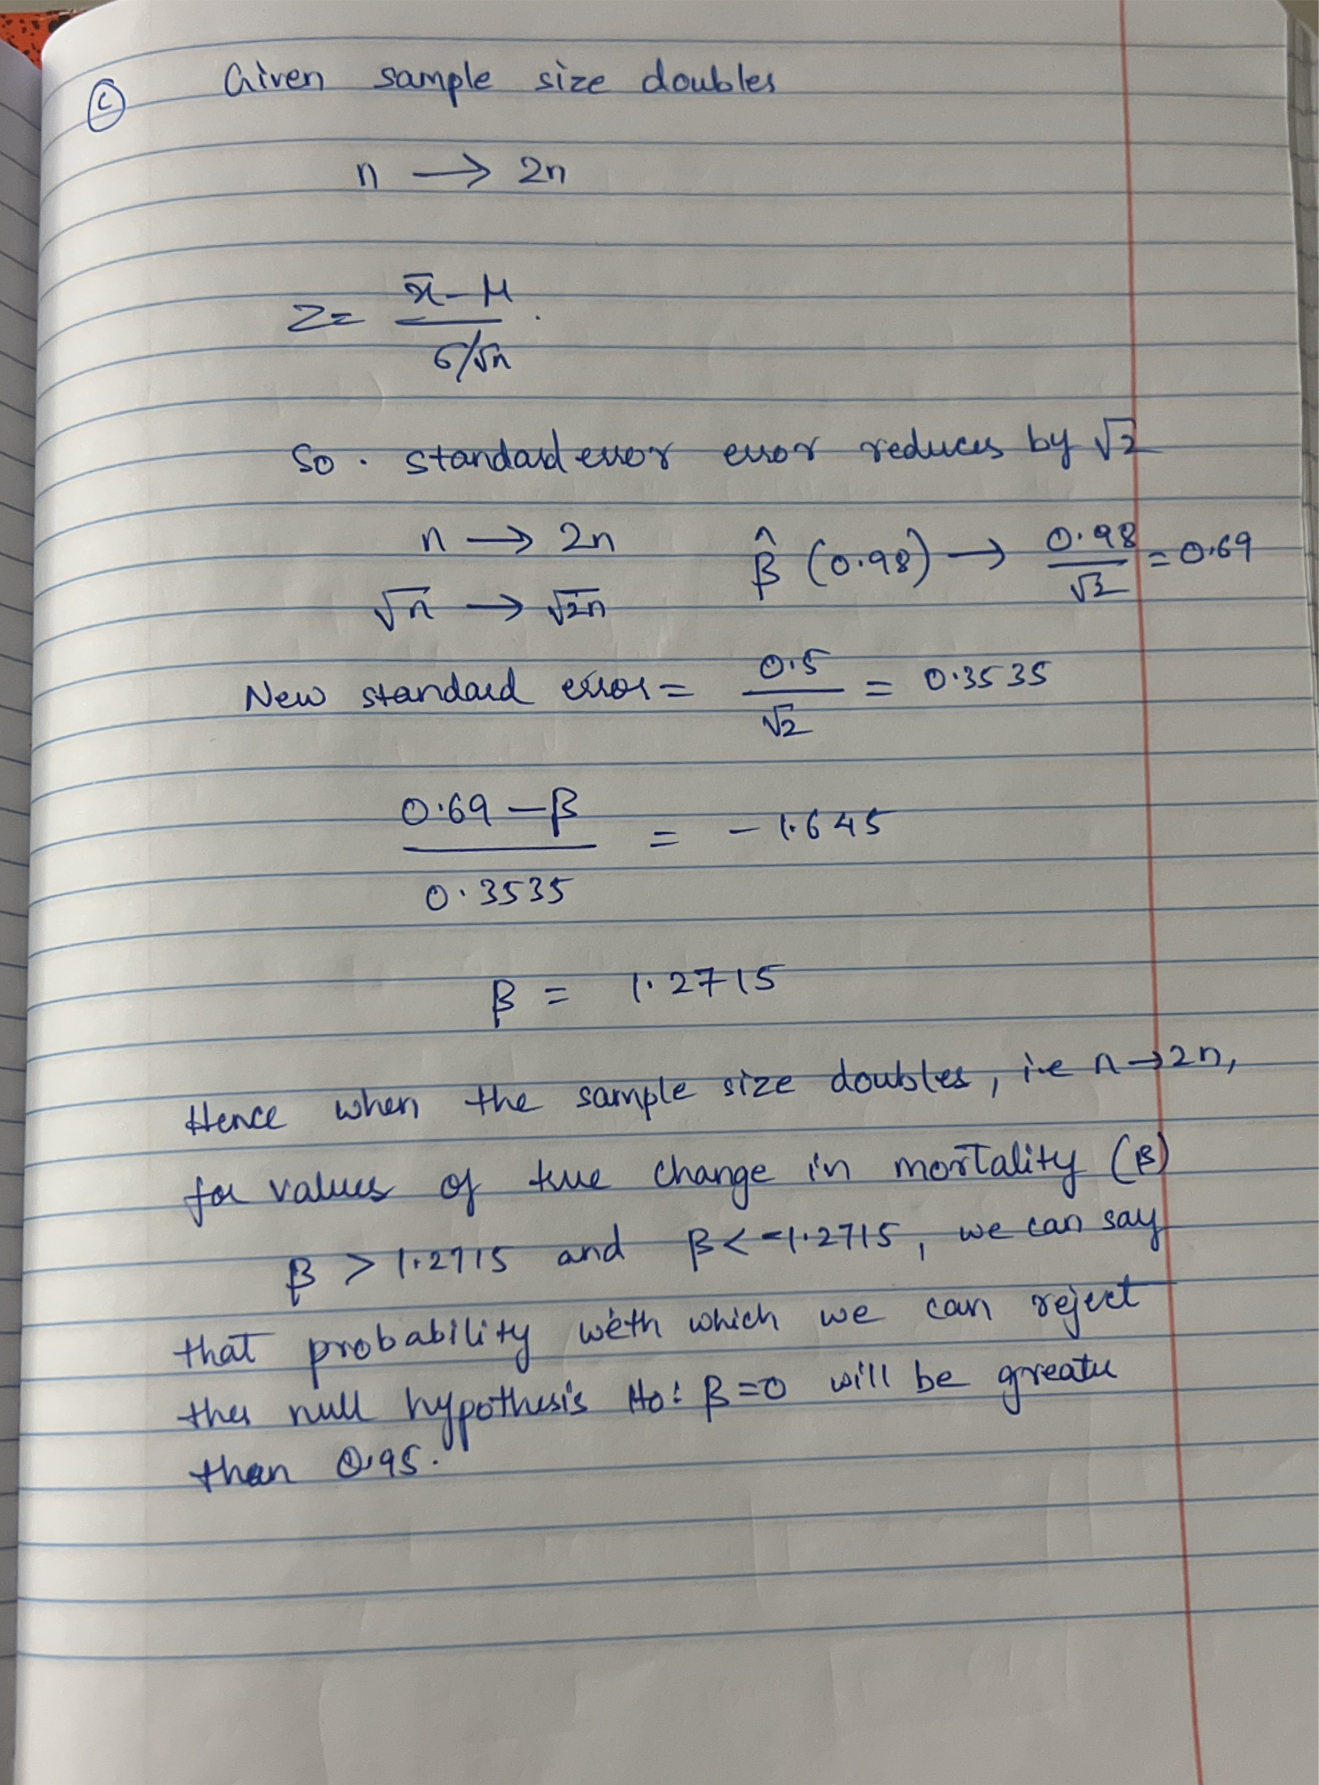 (c) Given sample size doubles
n → 2n
Z = x̄ - μ / σ/√n .
So . standard error error reduces by √2
n → 2n β̂ (0.98) → 0.98/√2 = 0.69
√n → √2n
New standard error = 0.5/√2 = 0.3535
0.69 - β / 0.3535 = -1.645
β = 1.2715
Hence when the sample size doubles, i.e n → 2n,
for values of true change in mortality (β)
β > 1.2715 and β < -1.2715, we can say
that probability with which we can reject
the null hypothesis Ho: β = 0 will be greater
than 0.95.